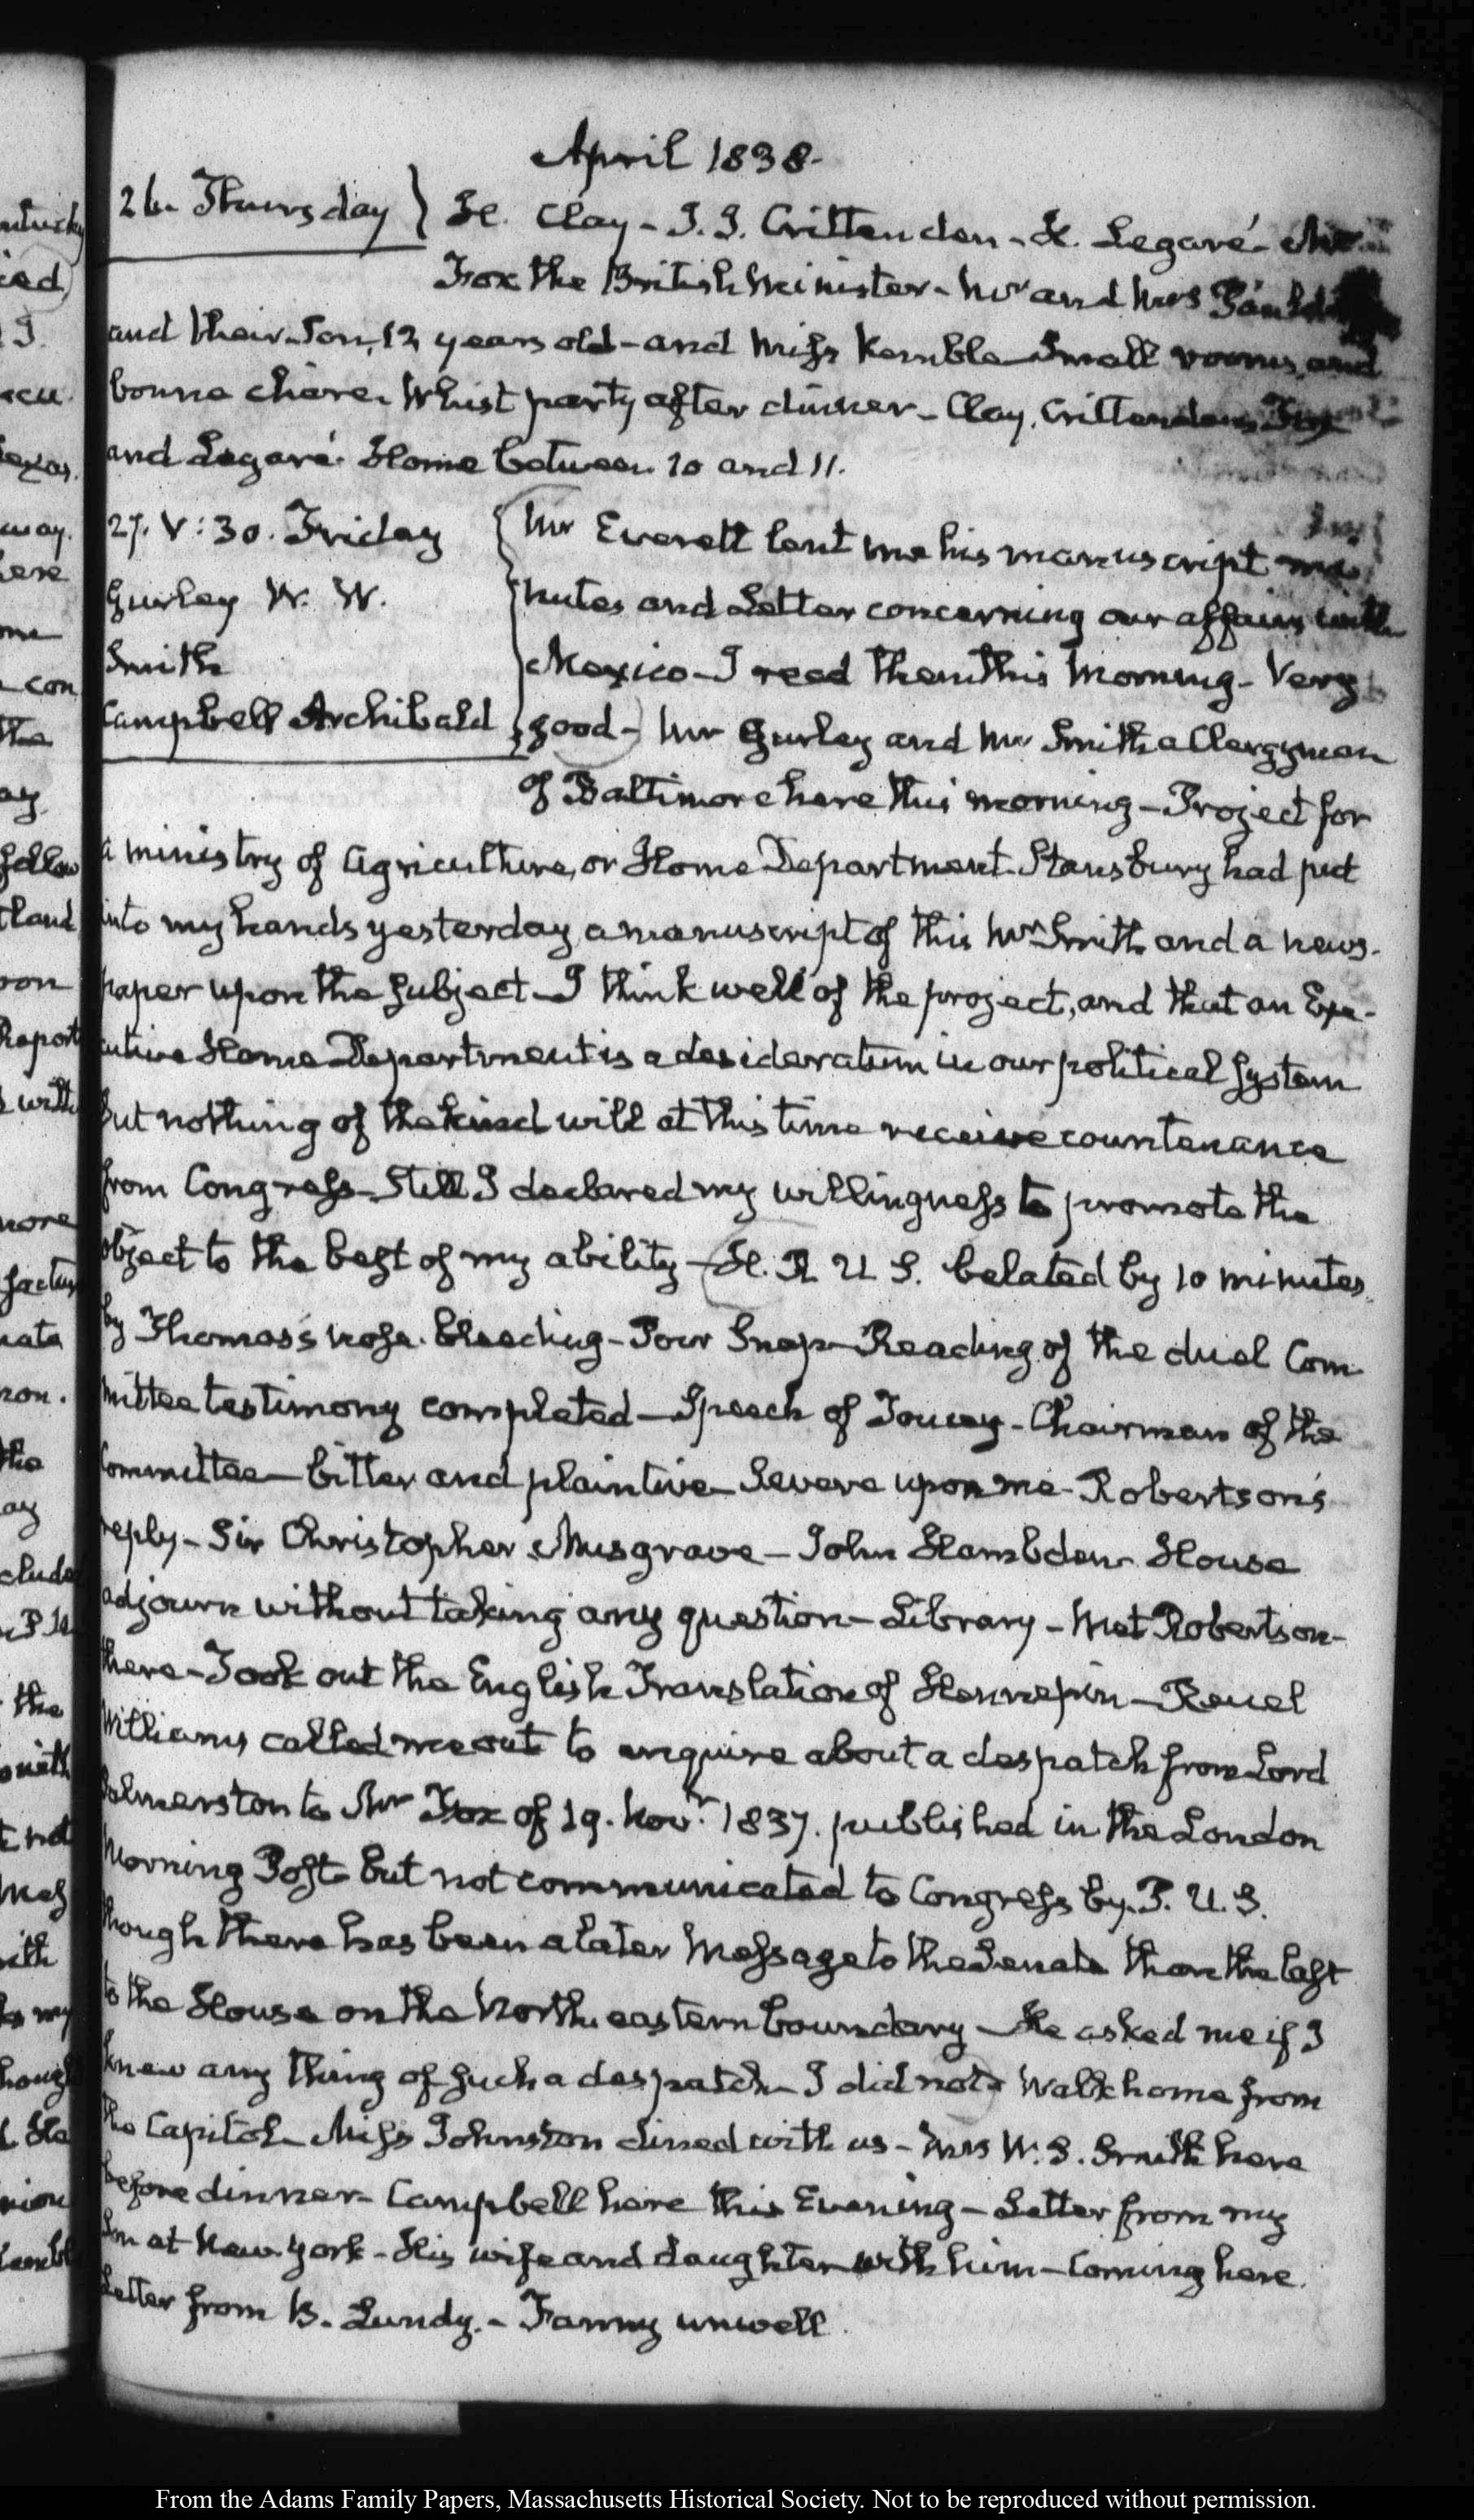 April 1838.
26. Thursday } H. Clay - J. J. Crittenden - H. Legaré - Mr
Fox the British Minister - Mr and Mrs
and their Son, 12 years old - and Miss Kemble Small rooms, and
bonne chère. Whist party after dinner - Clay, Crittenden, Fox
and Legaré. Home between 10 and 11.
27. V:30. Friday
Gurley W. W.
Smith
Campbell Archibald
Mr Everett lent me his manuscript mi
nutes and Letter concerning our affairs with
Mexico - I read them this Morning - Very
good - Mr Gurley and Mr Smith a Clergyman
of Baltimore here this morning - Project for
a ministry of Agriculture, or Home Department. Stansbury had put
into my hands yesterday a manuscript of this Mr Smith and a news-
paper upon the subject - I think well of the project, and that an Exe-
cutive Home Department is a desideratum in our political system
but nothing of the kind will at this time receive countenance
from Congress - Still I declared my willingness to promote the
object to the best of my ability - H. R. U S. belated by 10 minutes
by Thomas's nose bleeding - Pour Snap - Reading of the duel Com
mittee testimony completed - Speech of Toucey - Chairman of the
Committee - bitter and plaintive - Severe upon me - Robertson's
reply - Sir Christopher Musgrave - John Hambden - House
adjourn without taking any question - Library - Met Robertson
there - Took out the English Translation of Hennepin - Reuel
Williams called me out to enquire about a despatch from Lord
Palmerston to Mr Fox of 19. Novr. 1837. published in the London
Morning Post but not communicated to Congress by P. U. S.
though there has been a later Message to the Senate than the last
to the House on the North eastern boundary - He asked me if I
knew any thing of such a despatch - I did not - Walk home from
the Capitol - Miss Johnston dined with us - Mrs W. S. Smith here
before dinner - Campbell here this Evening - Letter from my
Son at New-York - His wife and daughter with him - Coming here.
Letter from B. Lundy. - Fanny unwell.
From the Adams Family Papers, Massachusetts Historical Society. Not to be reproduced without permission.